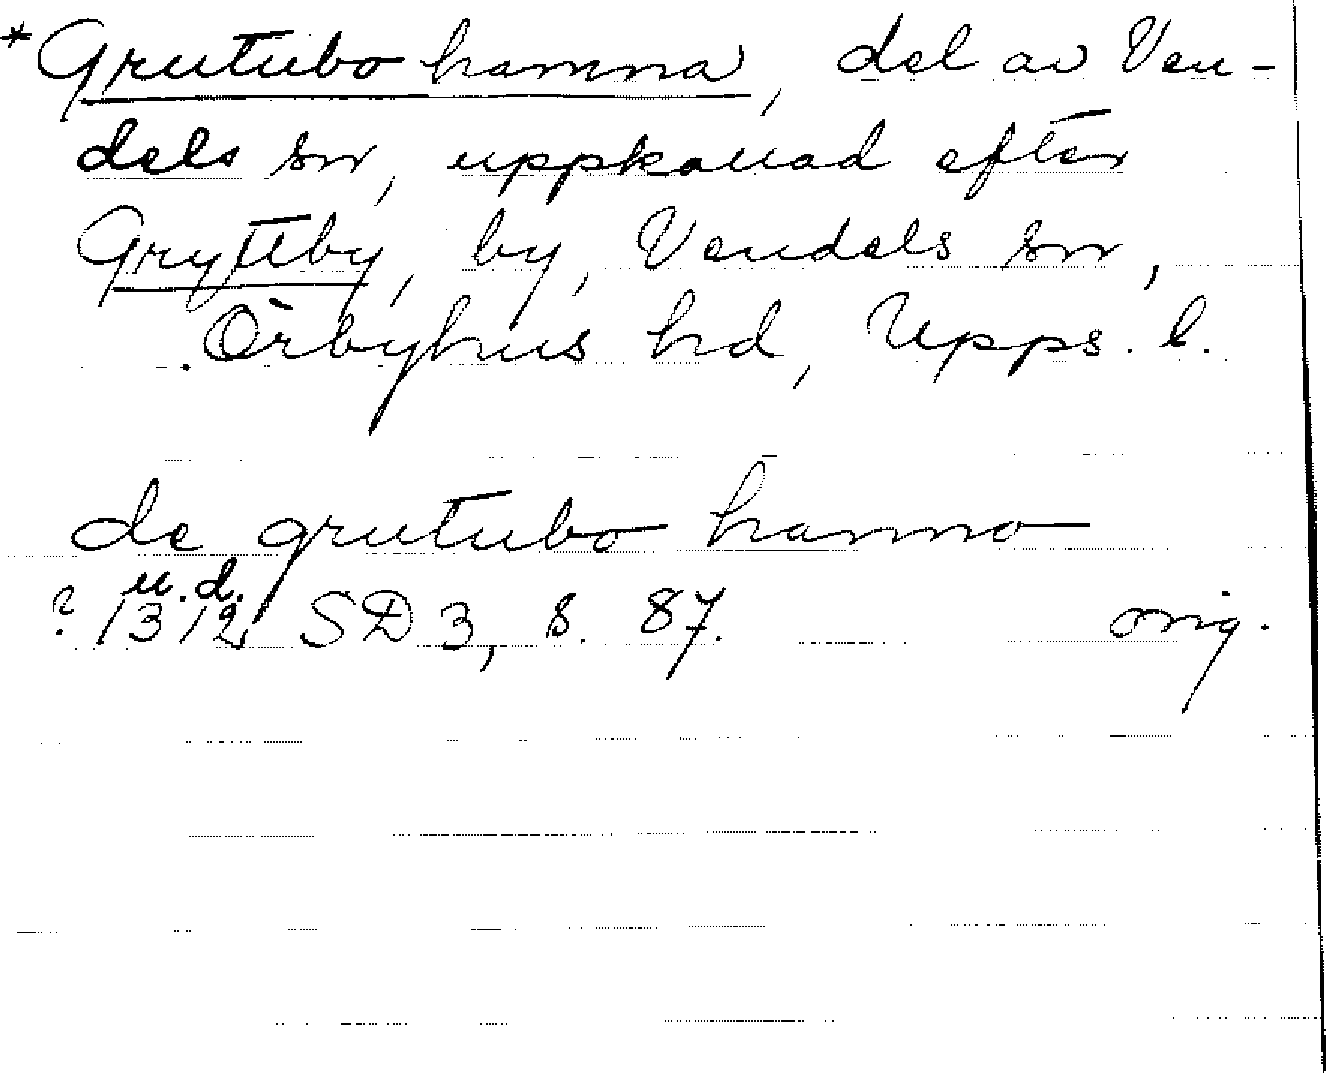 *Grutubo hamna, del av Ven-
dels sn, uppkallad efter
Grytteby, by, Vendels sn,
Örbyhus hd, Upps. l.
de grutubo hamno
u.d.
? 1312 SD 3, s. 87. orig.